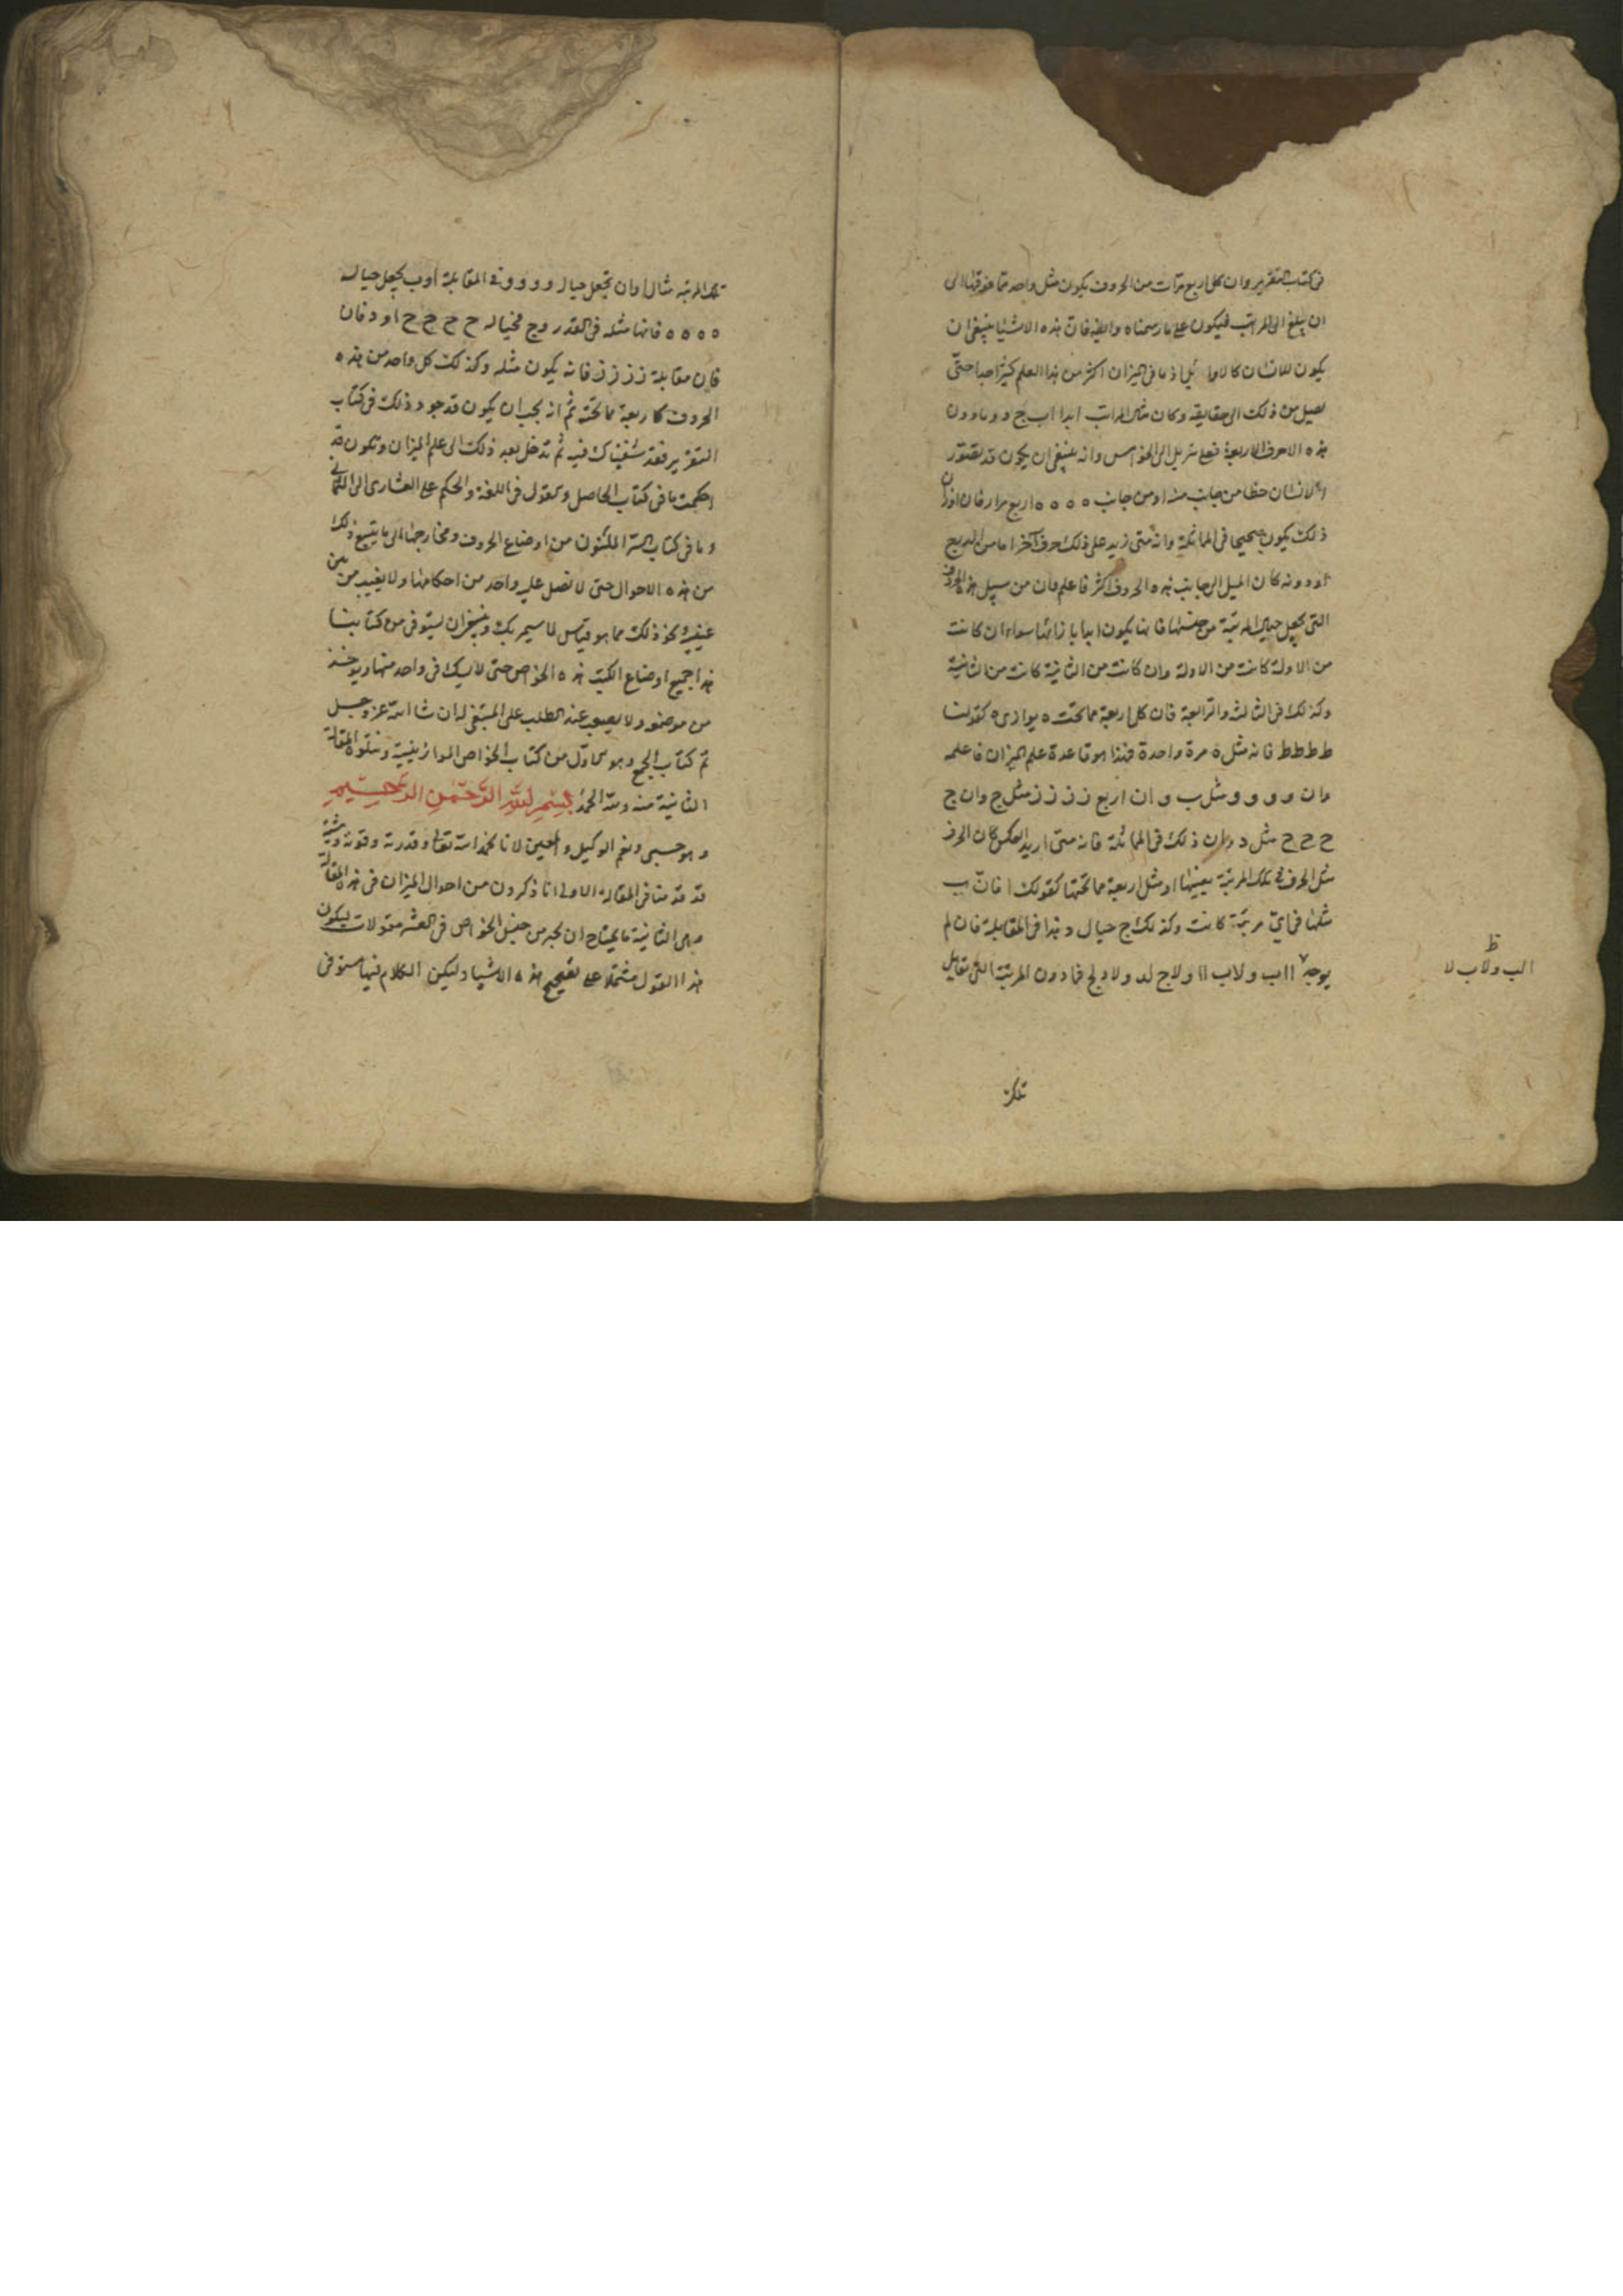 فى كتاب التقرير وان كل اربع مرآت من الحروف يكون مثل واحد مما فوقها الى
ان يبلغ الى المراتب فيكون على ما رسمناه وايضا فان هذه الاشيا ينبغى ان
يكون للانسان كالاوائل اذ ما فى الميزان اكثر من هذا العلم كثيرا جدا حتى
يصل من ذلك الى حقايقه وكان مثل المراتب ابدا اب ج د وما دون
هذه الاحرف الاربعة فعلى تنزيل الى الخوامس وانه ينبغى ان يكون قد تصور
الانسان حظا من جانب منه او من جانب ه ه ه ه اربع مرار فان
ذلك يكون صحيحا فى المماثلة وانه متى زيد على ذلك حرف آخر اما من المربع
او دونه كان الميل الى جانب هذه الحروف اكثر فاعلم وان من سبيل هذه الحروف
التى يجعل حيال المرتبة من جنسها فانها يكون ابدا بازائها سواء ان كانت
من الاولة كانت من الاولة وان كانت من الثانية كانت من الثانية
وكذلك فى الثالثة والرابعة فان كل اربعة مما تحته يوازى ه كقولنا
ط ط ط ط فانه مثل ه مرة واحدة فهذا هو قاعدة علم الميزان فاعلمه
وان و و و و مثل ب و ان اربع ز ز ز ز مثل ج وان ح
ح ح ح مثل د وان ذلك فى المماثلة فانه متى اريد العكس كان الحرف
مثل الحرف فى تلك المرتبة بعينها او مثل اربعة مما تحتها كقولك ا فان ب
مثلها فى اى مرتبة كانت وكذلك ج حيال د هذا فى المقابلة فان لم
يوجد ااب ولا ب اا ولا ج لد ولا د لج فما دون المرتبة التى تقابل
ظ
الب ولا ب لا
تلك
تلك المرتبة مثال ا وان تجعل حيال و و و و فى المقابلة او ب يجعل حياله
ه ه ه ه فانها مثله فى القدر و ج فحياله ح ح ح ح او د فان
فان مقابلة ز ز ز ز فانه يكون مثله وكذلك كل واحد من هذه
الحروف كاربعة مما تحته ثم انه يجب ان يكون قد جود ذلك فى كتاب
التقرير فقد شفيناك فيه ثم تدخل بعد ذلك الى علم الميزان وتكون قد
احكمت ما فى كتاب الحاصل ونقول فى اللغة والحكم على
وما فى كتاب السر المكنون من اوضاع الحروف ومخارجها الى ما يتبع ذلك
من هذه الاحوال حتى لا تصل على واحد من احكامها ولا يغيب من
غيره نحو ذلك مما هو قياس لما سيمر بك وينبغى ان يستوفى من كتابنا
هذا جميع اوضاع الكتب هذه الخواص حتى لا يشك فى واحد منها ويوخذ
من موضعه ولا يصعب عند الطلب على المبتغى له ان شا الله عز وجل
تم كتاب الجمع وهو الاول من كتاب الخواص الموازينية ويتلوه المقالة
الثانية منه ولله الحمد بِسْمِ اللَّهِ الرَّحْمٰنِ الرَّحِيمِ
وهو حسبى ونعم الوكيل والمعين لانا بحمد الله تعالى وقدرته وقوته ومشيته
قد قدمنا فى المقالة الاولى انا ذاكرون من احوال الميزان فى هذه المقالة
وهى الثانية ما يحتاج ان يخبر من جنس الخواص فى العشر مقولات ليكون
هذا القول مشتملا على تصحيح هذه الاشيا وليكن الكلام فيها مستوفى